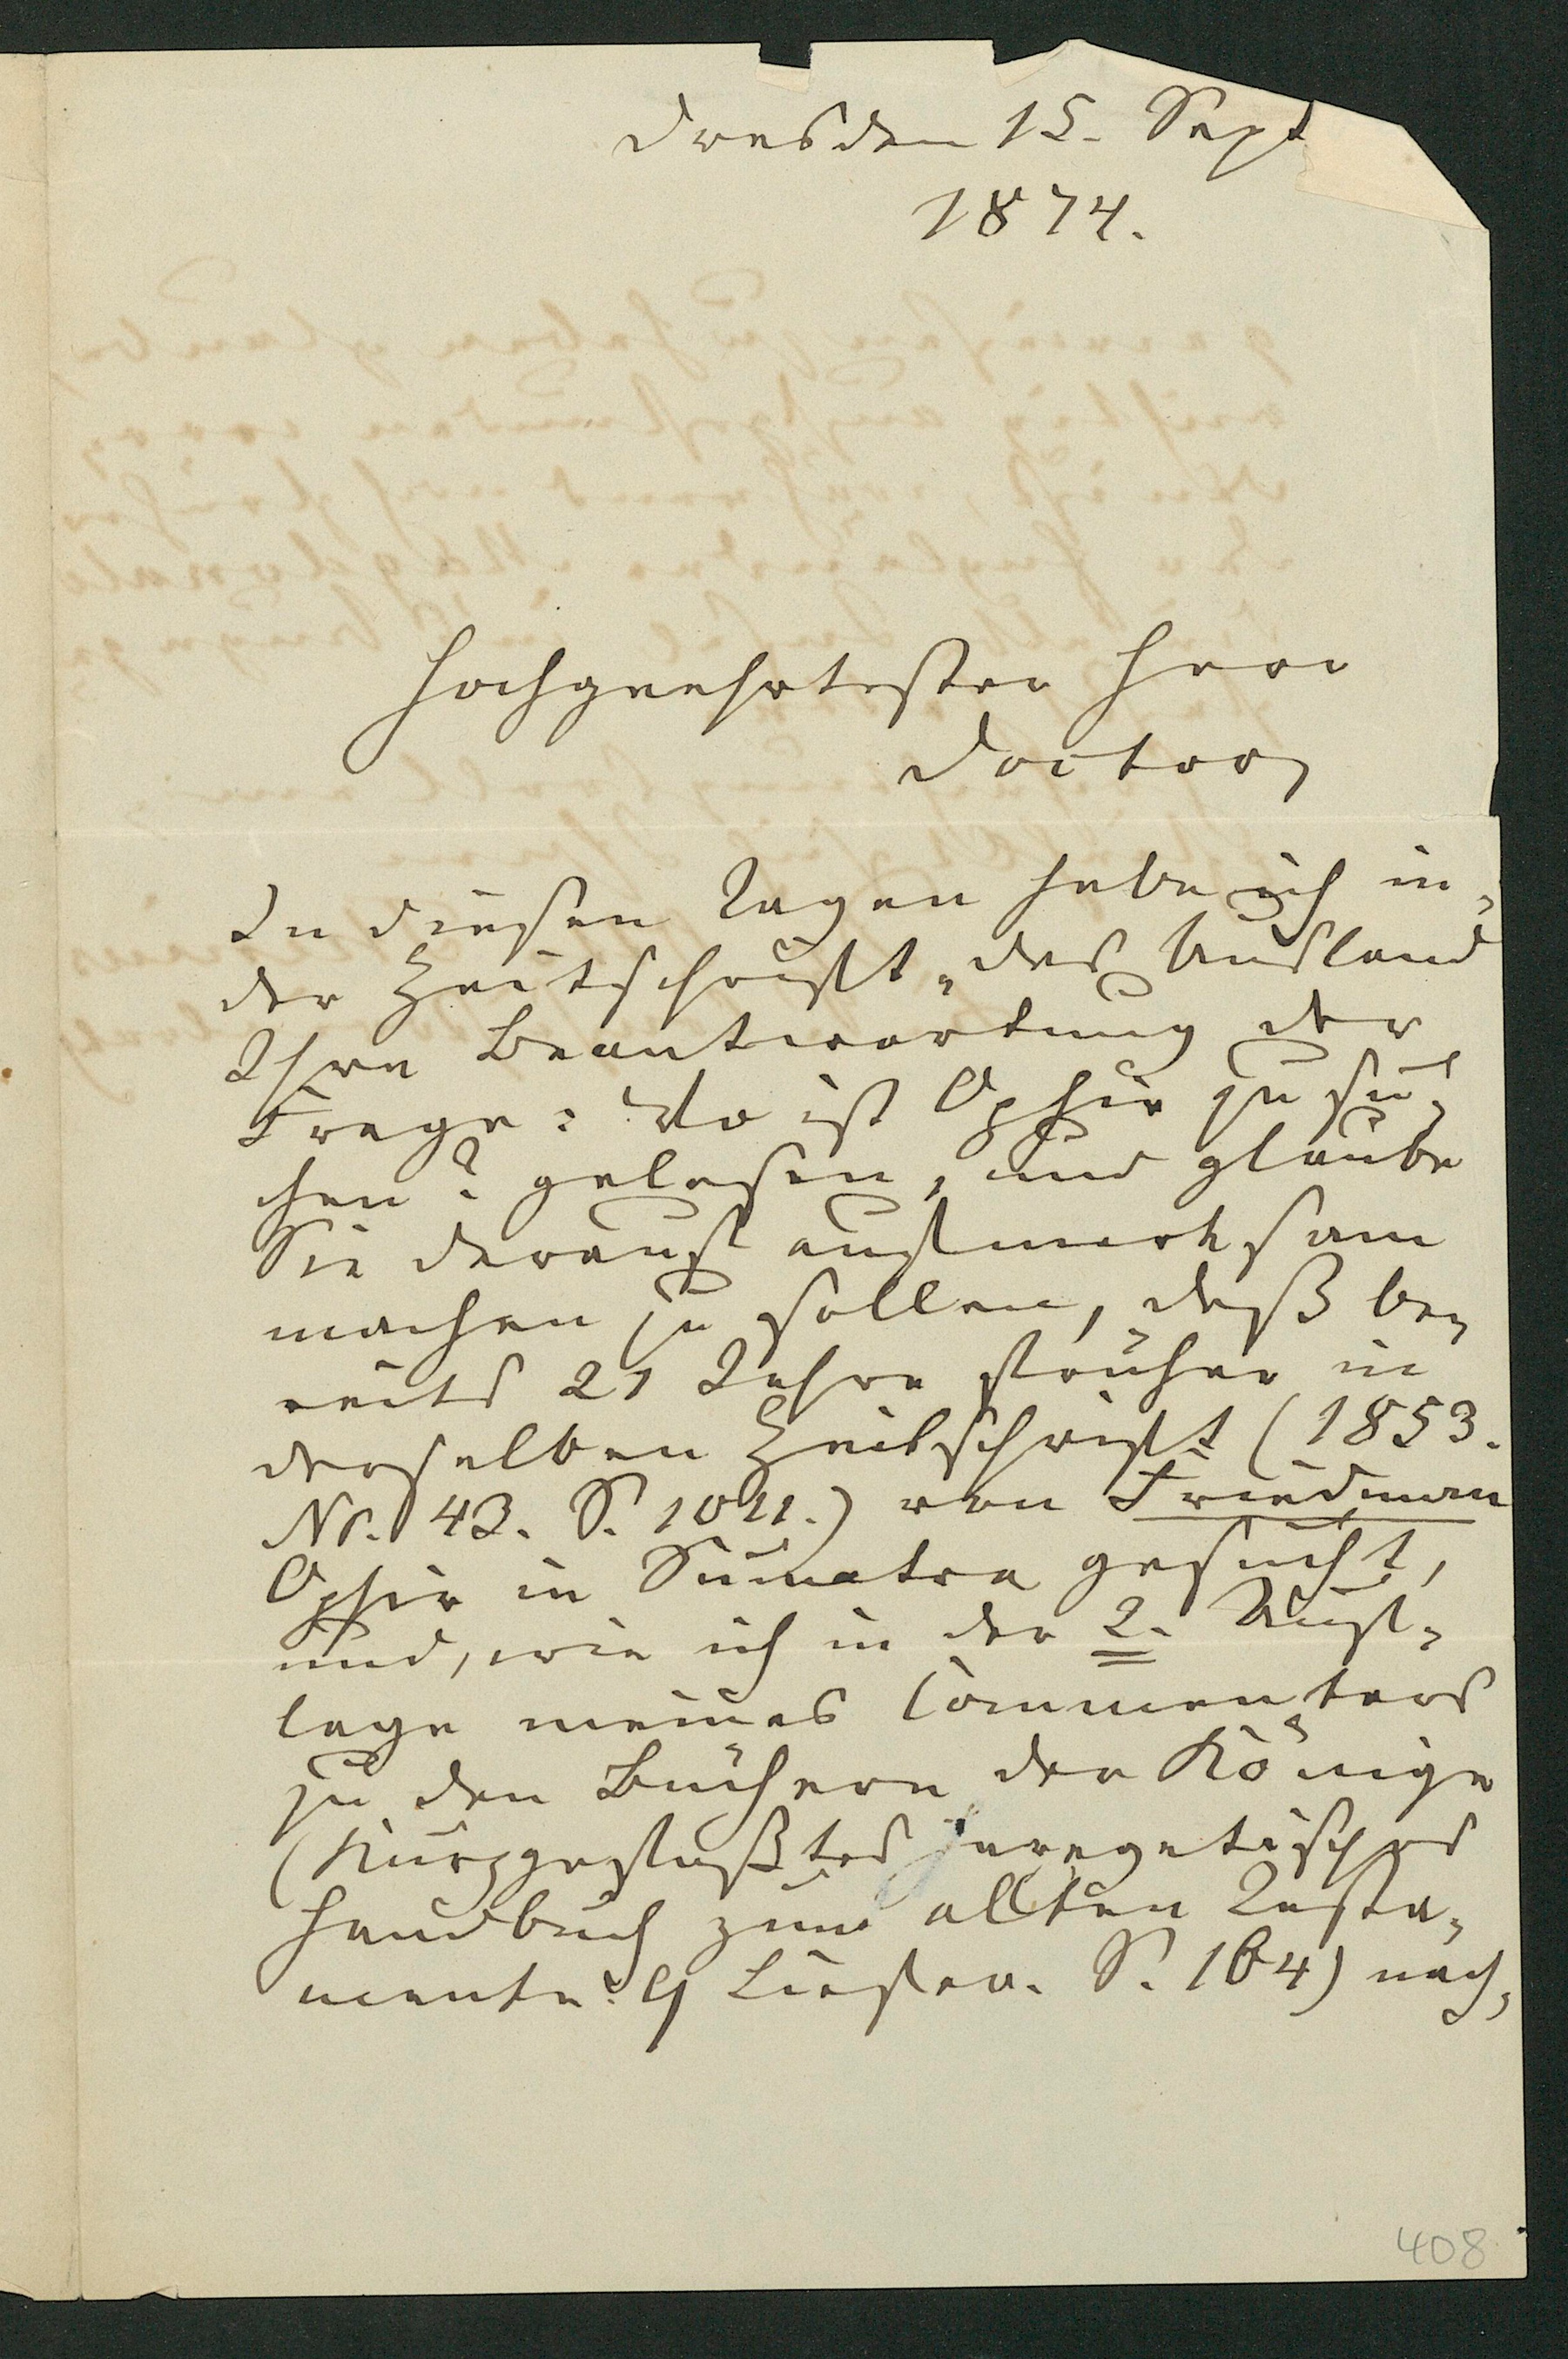 Dresden 15. Sept
1874.
Hochgeehrtester Herr
Doctor,
In diesen Tagen habe ich in
der Zeitschrift „das Ausland
Ihre Beantwortung der
Frage: Wo ist Ophir zu su-
chen? gelesen, und glaube
Sie darauf aufmerksam
machen zu sollen, daß be-
reits 21 Jahre früher in
derselben Zeitschrift (1853.
Nr. 43. S. 1011.) von Friedman
Ophir in Sumatra gesucht,
und, wie ich in der 2. Auf-
lage meines Commentars
zu den Büchern der Könige
(Kurzgefaßtes exegetisches
Handbuch zum allten Testa-
mente. 9 Liefer. S. 164) nach-
408